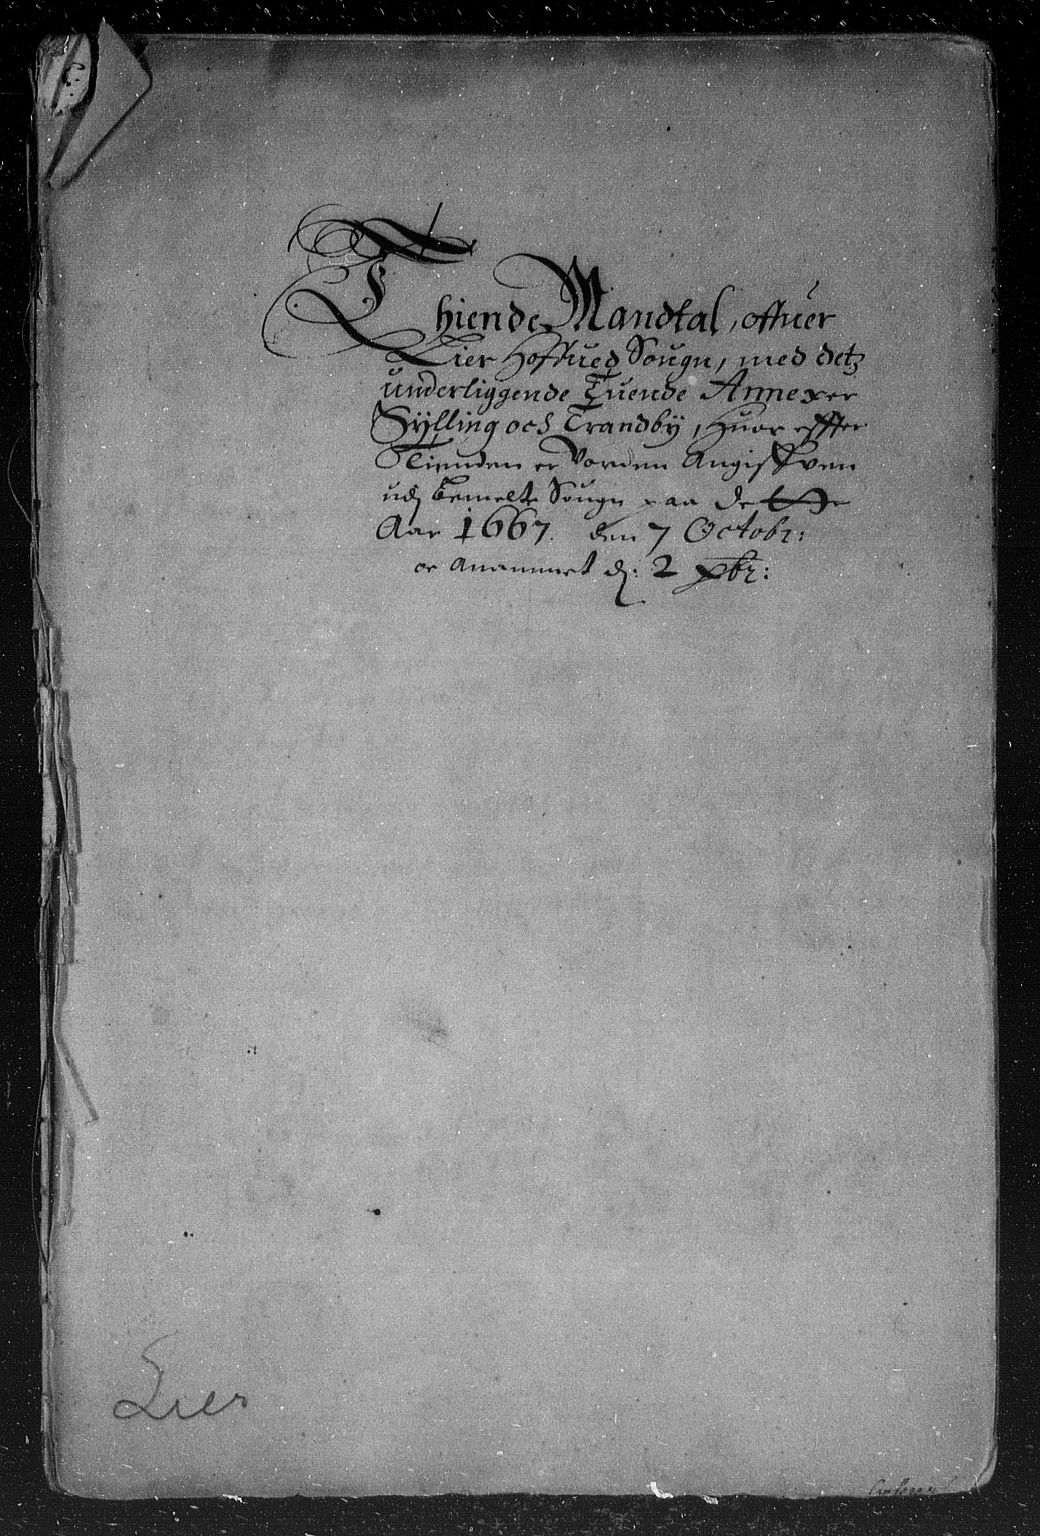 Thiende Mandtal, offuer
Lier Hoffued Sougn, med detz
underliggende Tuende Annexer
Sÿlling och Trandbÿ, Huor effter
Tienden er Vorden Angiffven
udj bemelte Sougn paa dette
Aar 1667. den 7 Octobr:
oc Anammet dj: 2 xbr:
Lier